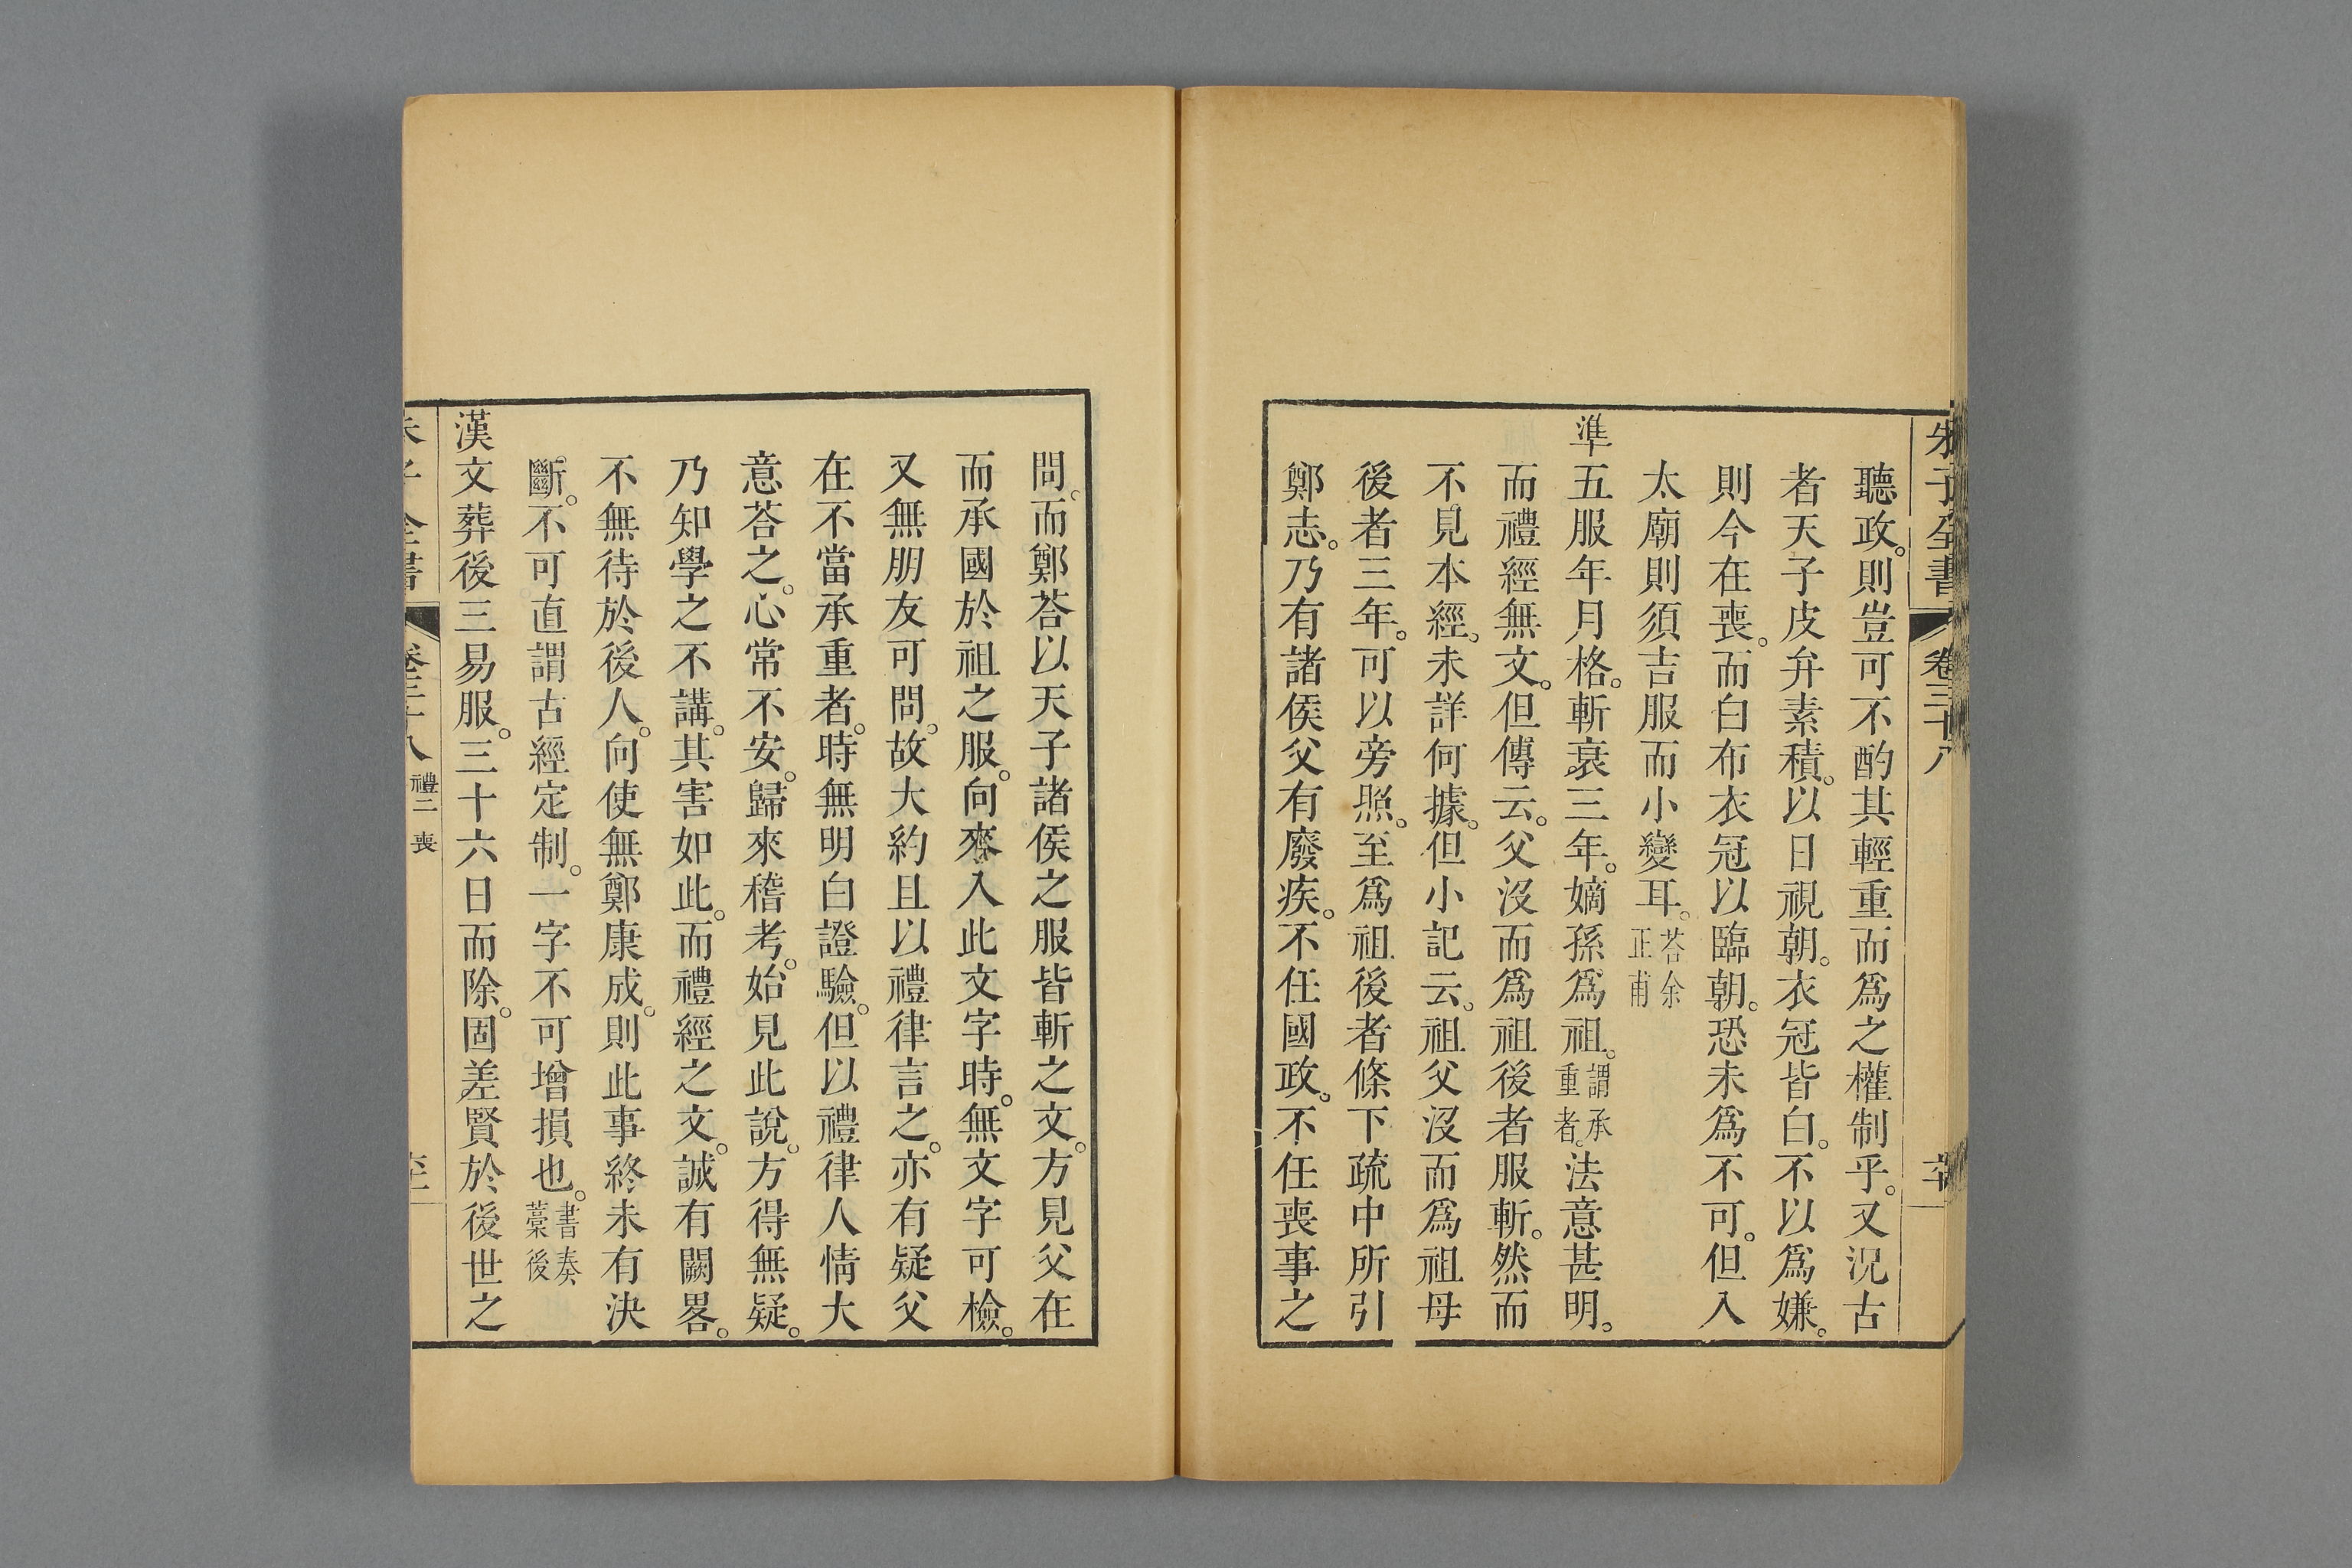 朱子全書 卷三十八
聽政。則豈可不酌其輕重而爲之權制乎。又況古
者天子皮弁素積。以日視朝。衣冠皆白。不以爲嫌。
則今在喪。而白布衣冠以臨朝。恐未爲不可。但入
太廟則須吉服而小變耳。荅余正甫
準五服年月格。斬衰三年。嫡孫爲祖。謂承重者。法意甚明。
而禮經無文。但傳云。父沒而爲祖後者服斬。然而
不見本經。未詳何據。但小記云。祖父沒而爲祖母
後者三年。可以旁照。至爲祖後者條下疏中所引
鄭志。乃有諸侯父有廢疾。不任國政。不任喪事之
問。而鄭荅以天子諸侯之服皆斬之文。方見父在
而承國於祖之服。向來入此文字時。無文字可檢。
又無朋友可問。故大約且以禮律言之。亦有疑父
在不當承重者。時無明白證驗。但以禮律人情大
意荅之。心常不安。歸來稽考。始見此說。方得無疑。
乃知學之不講。其害如此。而禮經之文。誠有闕畧。
不無待於後人。向使無鄭康成。則此事終未有決
斷。不可直謂古經定制。一字不可增損也。書奏藁後
漢文葬後三易服。三十六日而除。固差賢於後世之
朱子全書 卷三十八 禮二 喪